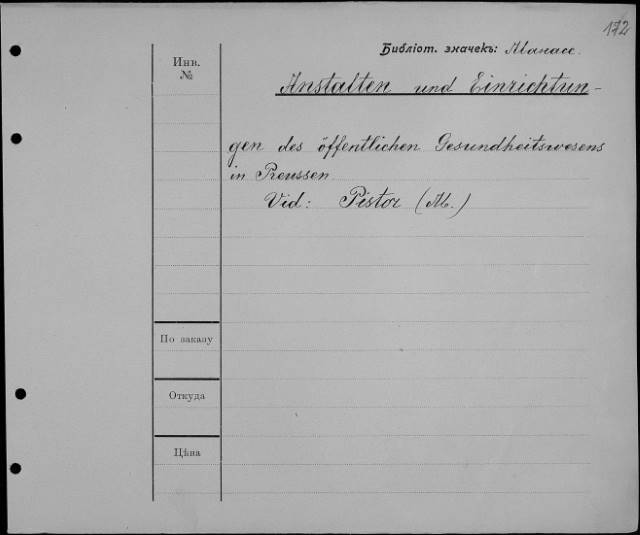 172
Библіот. значекъ:
Инв.
№
Anstalten und Einrichtun-
gen des öffentlichen Gesundheitswesens
in Preussen
Vid: Pistor (M.)
По заказу
Откуда
Цѣна